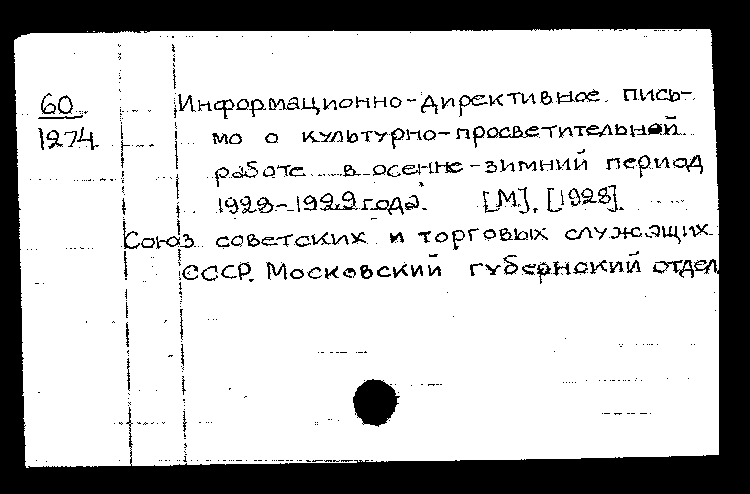 60
1274
Информационно-директивное пись-
мо о культурно-просветительной
работе в осенне-зимний период
1928-1929 года. [М]. [1928].
Союз советских и торговых служащих
СССР. Московский губернский отдел